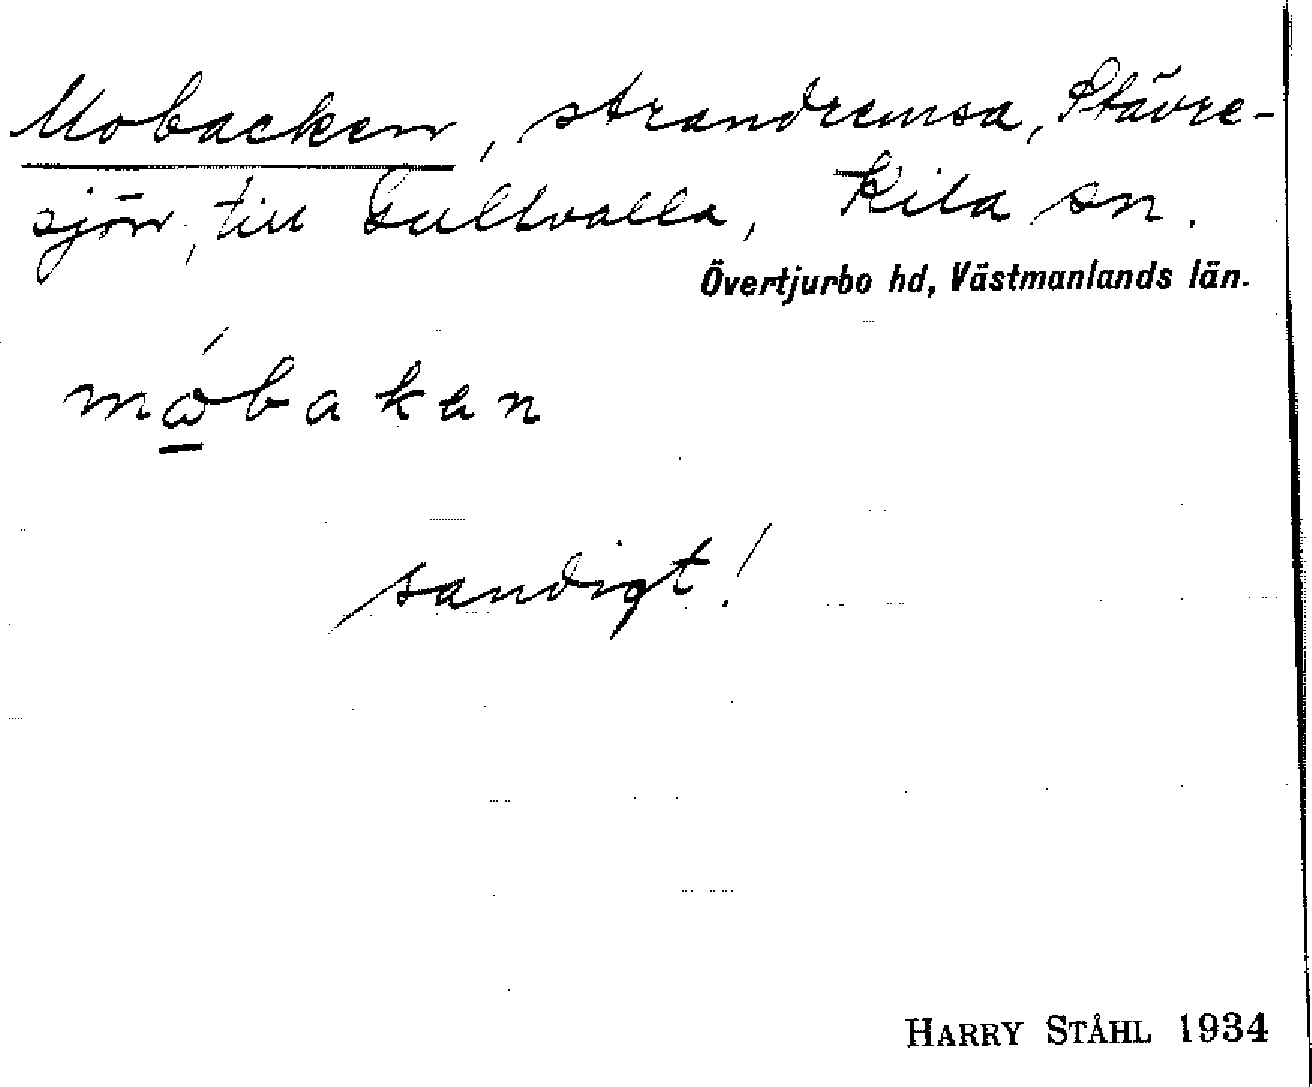 Mobacken, strandremsa, Stävre-
sjön, till Gullvalla, Kila sn.
Övertjurbo hd, Västmanlands län.
mώ̱bakan
sandigt!
HARRY STÅHL 1934